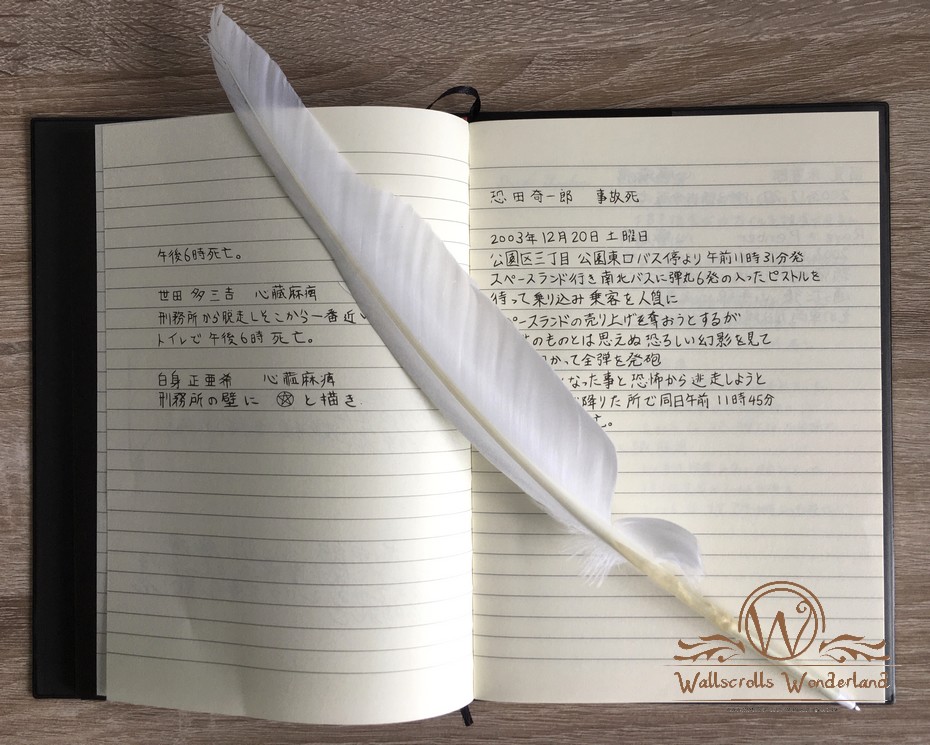 午後6時死亡。
世田 多三吉 心臓麻痺
刑務所から脱走しそこから一番近い
トイレで午後6時死亡。
白身 正亜希 心臓麻痺
刑務所の壁に と描き
恐田奇一郎 事故死
2003年12月20日 土曜日
公園区三丁目 公園東口バス停より午前11時31分発
スペースランド行き南北バスに弾丸6発の入ったピストルを
待って乗り込み 乗客を人質に
ペースランドの売り上げを奪おうとするが
のものとは思えぬ恐ろしい幻影を見て
かって全弾を発砲
なった事と恐怖から逃走しようと
降りた所で同日午前11時45分
亡。
W
Wallscrolls Wonderland